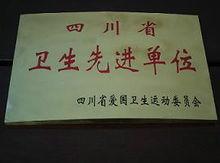 四川省
卫生先进单位
四川省爱国卫生运动委员会